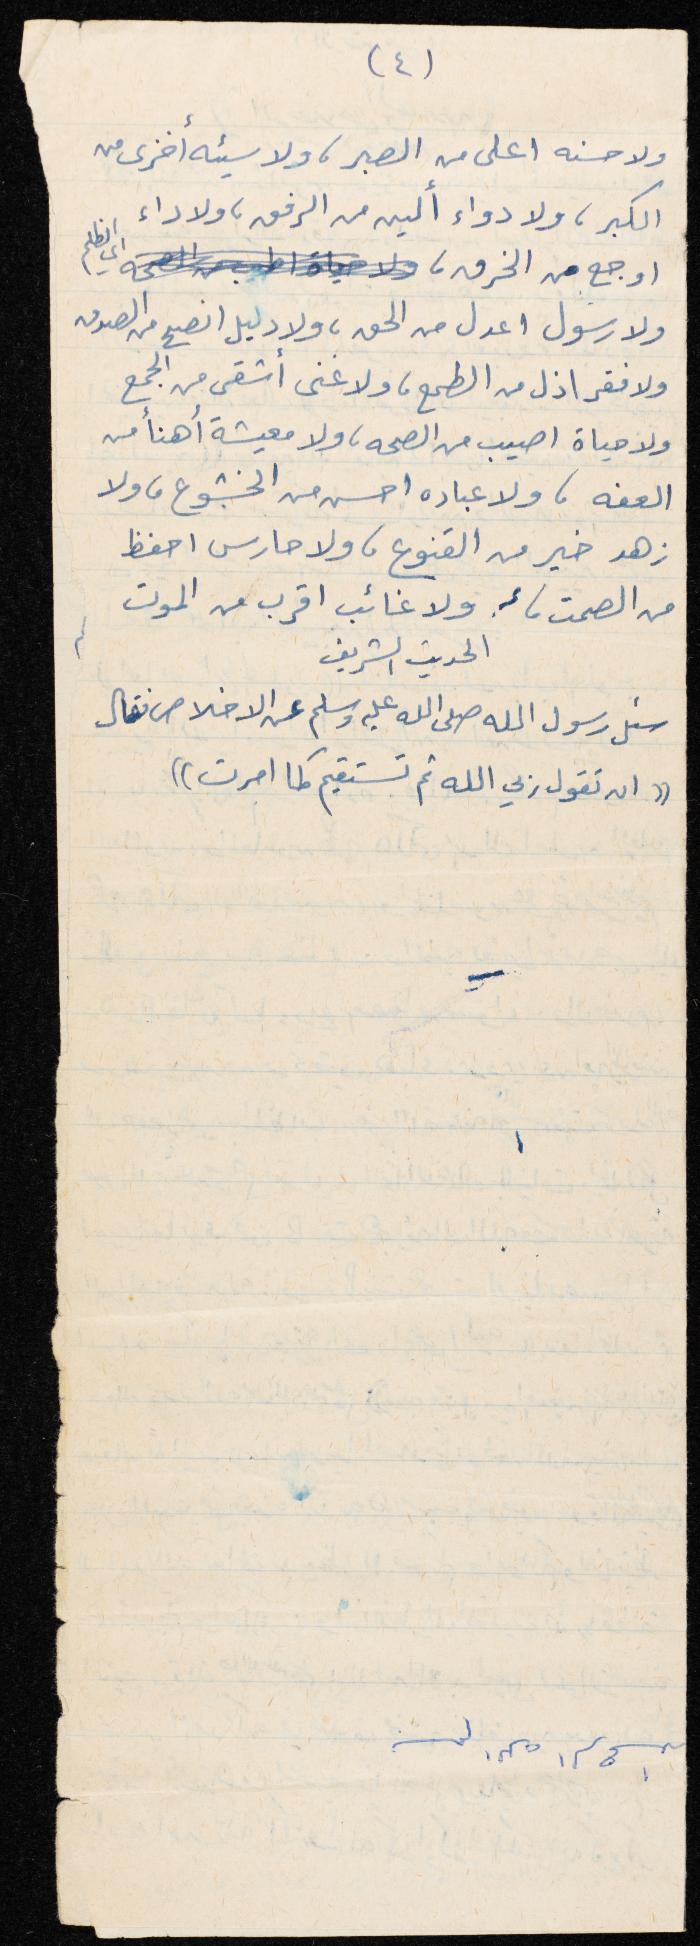 (٤)
ولا حسنه اعلى من الصبر، ولا سيئه أخزى من
الكبر، ولا دواء ألين من الرفق، ولا داء
اوجع من الخرق، ولا حياة اطيب من الصحه اي الظلم
ولا رسول اعدل من الحق، ولا دليل انصح من الصدق
ولا فقر اذل من الطمع، ولا غنى أشقى من الجمع
ولا حياة اطيب من الصحه، ولا معيشة أهنأ من
العفه، ولا عباده احسن من الخشوع، ولا
زهد خير من القنوع، ولا حارس احفظ
من الصمت، ولا غائب اقرب من الموت
الحديث الشريف
سئل رسول الله صلى الله عليه وسلم عن الاخلاص فقال
((ان تقول ربي الله ثم تستقيم كما امرت))